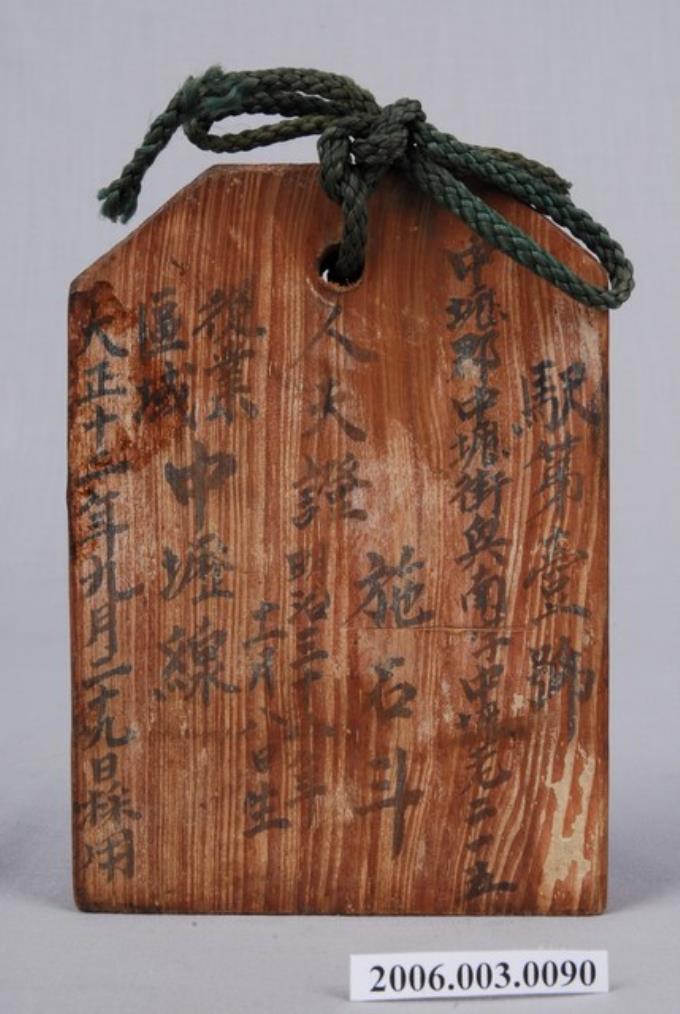 駅第壹號
中壢郡中壢街興南字中壢老二一五
施石斗
人夫證
明治三十八年
十二月八日生
従業
區域
中壢線
大正十二年九月二十九日採用
2006.003.0090